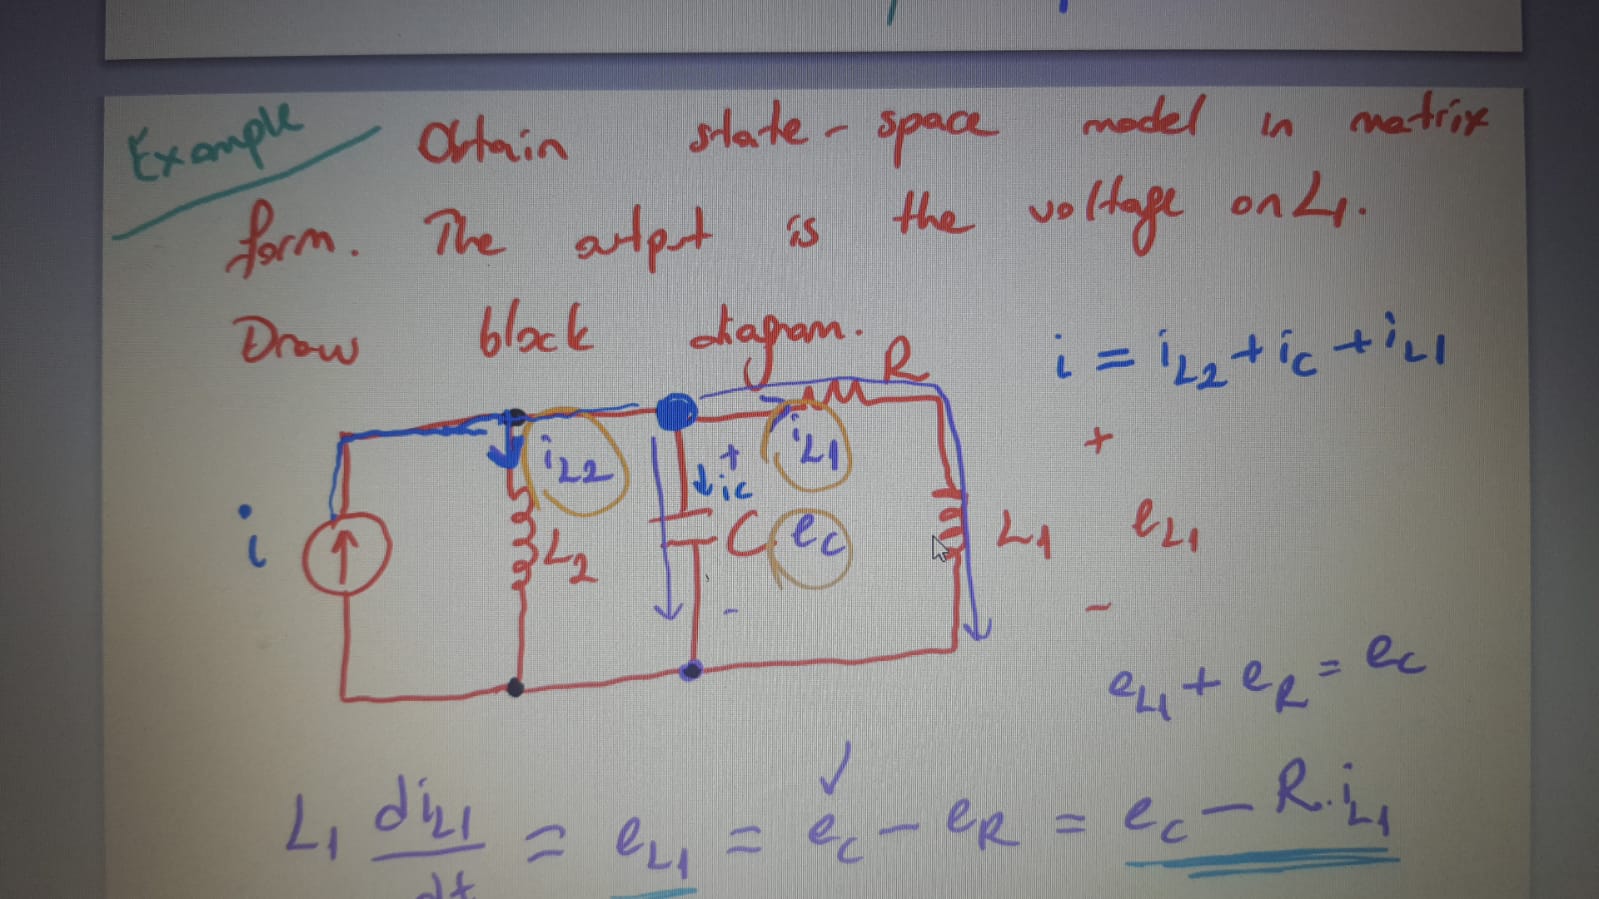 Example Obtain state-space model in matrix
form. The output is the voltage on L1.
Draw block diagram.
R
i = iL2 + ic + iL1
iL2
+
ic
iL1
+
i
L2
C
ec
L1
eL1
-
-
eL1 + eR = ec
L1 diL1/dt = eL1 = ec - eR = ec - R.iL1